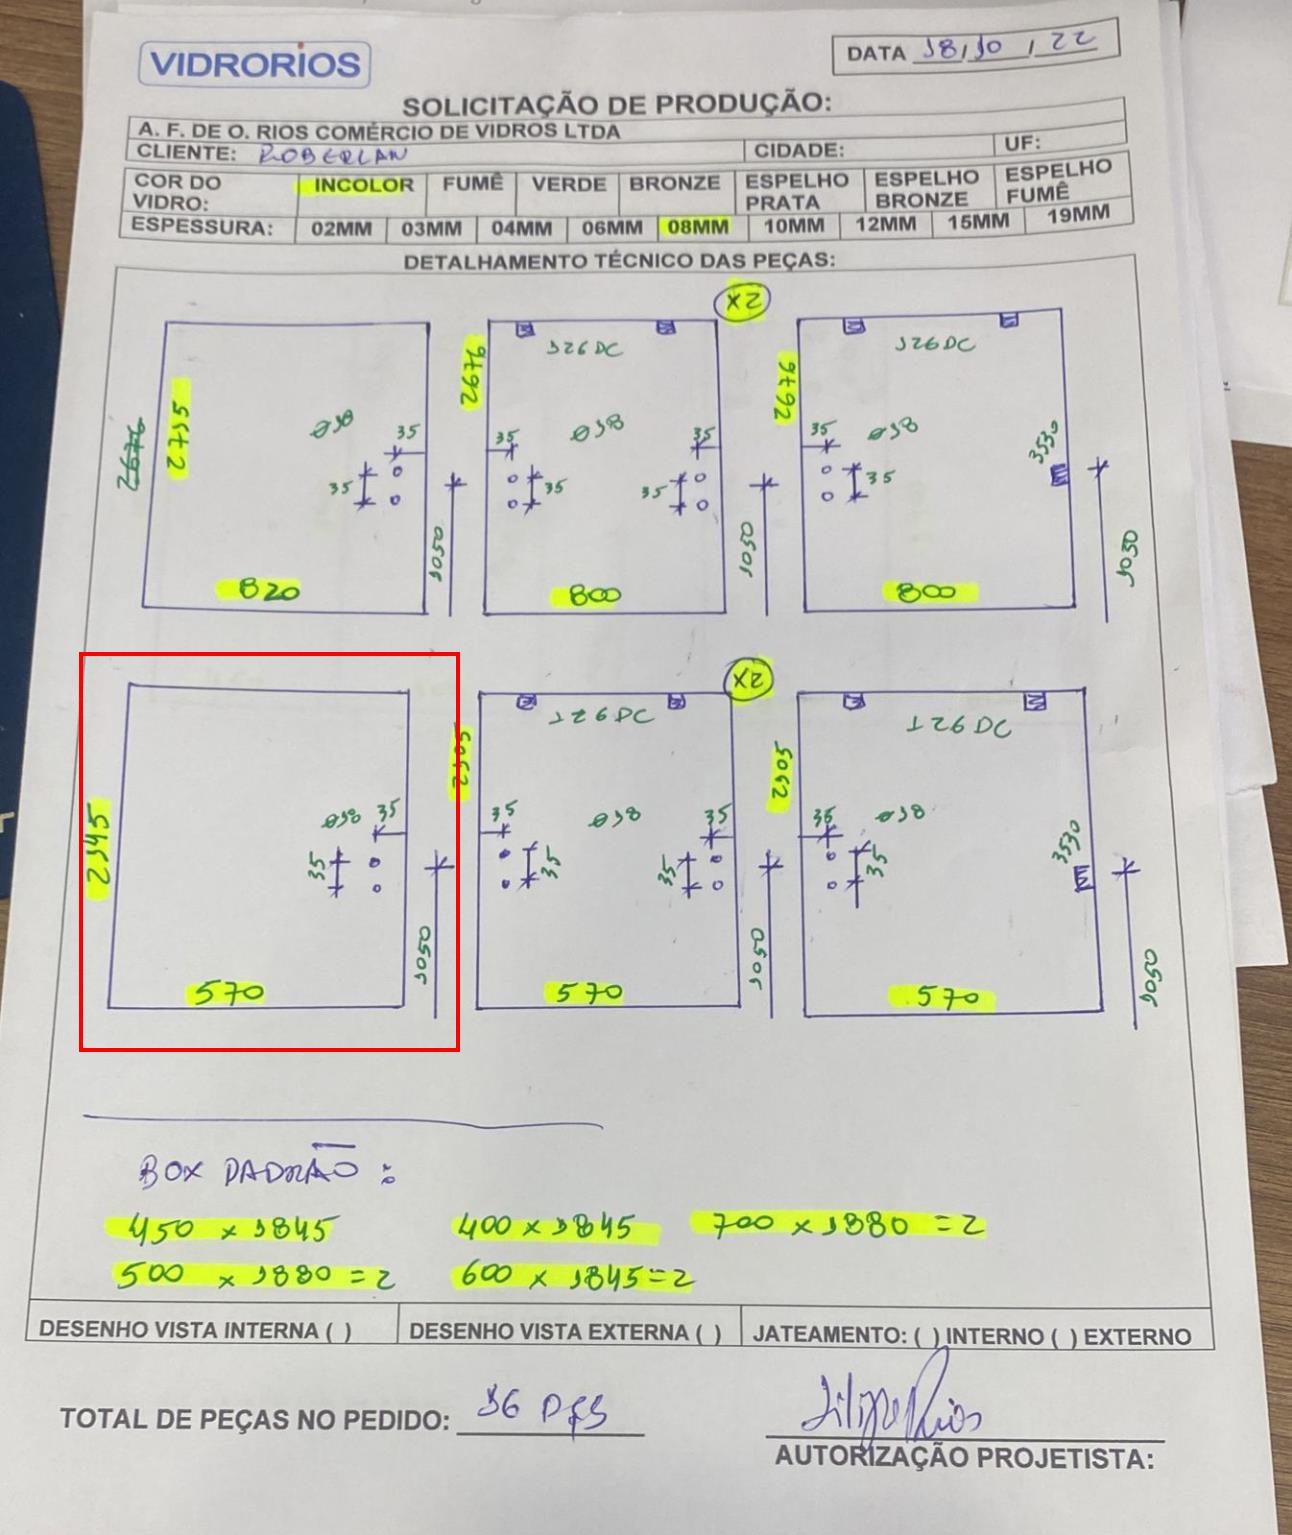 VIDRORIOS
DATA 18/10/22
SOLICITAÇÃO DE PRODUÇÃO:
A. F. DE O. RIOS COMÉRCIO DE VIDROS LTDA
CLIENTE: ROBERLAN CIDADE: UF:
COR DO VIDRO: INCOLOR FUMÊ VERDE BRONZE ESPELHO PRATA ESPELHO BRONZE ESPELHO FUMÊ
ESPESSURA: 02MM 03MM 04MM 06MM 08MM 10MM 12MM 15MM 19MM
DETALHAMENTO TÉCNICO DAS PEÇAS:
2X
126 DC 126 DC
Ø18 35 35 Ø18 35 35 Ø18
35 35 35 35 3530
1050 1050 1050
820 800 800
2X
126 DC 126 DC
Ø18 35 35 Ø18 35 35 Ø18
35 35 35 35 3530
2145
1050 1050 1050
570 570 570
BOX PADRÃO:
450 x 1845 400 x 1845 700 x 1880 = 2
500 x 1880 = 2 600 x 1845 = 2
DESENHO VISTA INTERNA ( ) DESENHO VISTA EXTERNA ( ) JATEAMENTO: ( ) INTERNO ( ) EXTERNO
TOTAL DE PEÇAS NO PEDIDO: 16 PÇS
Filipe Rios
AUTORIZAÇÃO PROJETISTA: